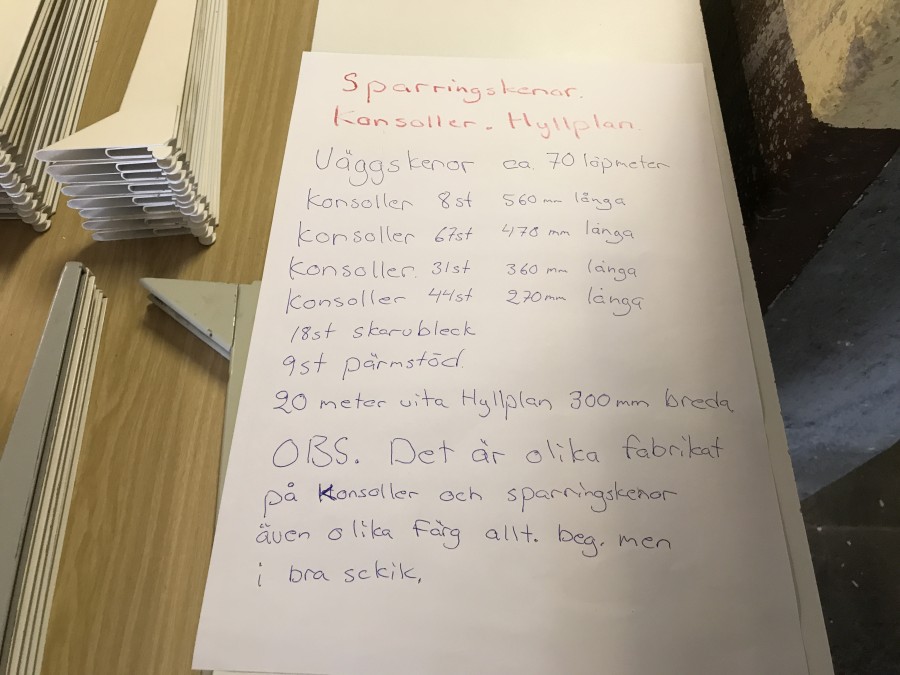 Sparringskenor.
Konsoller. Hyllplan
Väggskenor ca. 70 löpmeter
Konsoller 8st 560mm långa
Konsoller 67st 470 mm långa
Konsoller. 31st 360 mm långa
Konsoller 44st 270mm långa
18st skarvbleck
9st pärmstöd.
20 meter vita Hyllplan 300mm breda
OBS. Det är olika fabrikat
på Konsoller och sparringskenor
även olika Färg allt. beg. men
i bra sckik,